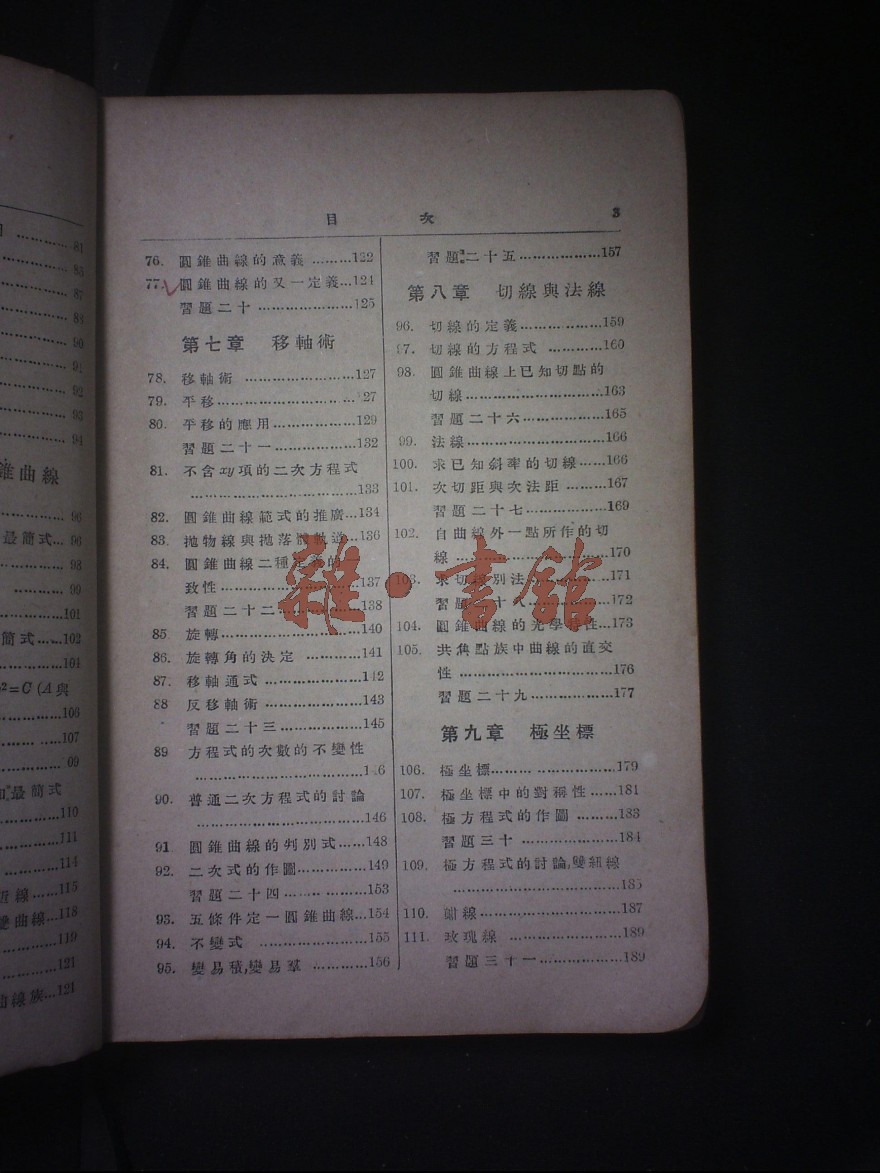 目 次 3
76. 圓錐曲線的意義 ………122
77. 圓錐曲線的又一定義…124
習題二十 …………………125
第七章 移軸術
78. 移軸術 ……………………127
79. 平移……………………… …27
80. 平移的應用………………129
習題二十一………………132
81. 不含xy項的二次方程式
……………………………133
82. 圓錐曲線範式的推廣…134
83. 拋物線與拋落體軌道…136
84. 圓錐曲線二種定義的一
致性………………………137
習題二十二………………138
85 旋轉…………………………140
86. 旋轉角的決定 …………141
87. 移軸通式…………………142
88 反移軸術…………………143
習題二十三………………145
89 方程式的次數的不變性
……………………………146
90. 普通二次方程式的討論
……………………………146
91 圓錐曲線的判別式……148
92. 二次式的作圖……………149
習題二十四………………153
93. 五條件定一圓錐曲線…154
94. 不變式 ……………………155
95. 變易積,變易羣 …………156
習題二十五………………157
第八章 切線與法線
96. 切線的定義………………159
97. 切線的方程式 …………160
98. 圓錐曲線上已知切點的
切線………………………163
習題二十六………………165
99. 法線………………………166
100. 求已知斜率的切線……166
101. 次切距與次法距 ………167
習題二十七………………169
102. 自曲線外一點所作的切
線 …………………………170
103. 求切線別法………………171
習題二十八………………172
104. 圓錐曲線的光學特性…173
105. 共焦點族中曲線的直交
性 …………………………176
習題二十九………………177
第九章 極坐標
106. 極坐標……………………179
107. 極坐標中的對稱性……181
108. 極方程式的作圖 ………183
習題三十 …………………184
109. 極方程式的討論,雙紐線
……………………………185
110. 蚶線………………………187
111. 玫瑰線 …………………189
習題三十一………………189
雜·書館
錐曲線
……………96
最簡式…96
……………98
………99
…………101
簡式……102
…………104
²=C (A與
…………106
……107
最簡式
…………110
…………111
…………114
……115
雙曲線…118
…………119
…………121
曲線族…121